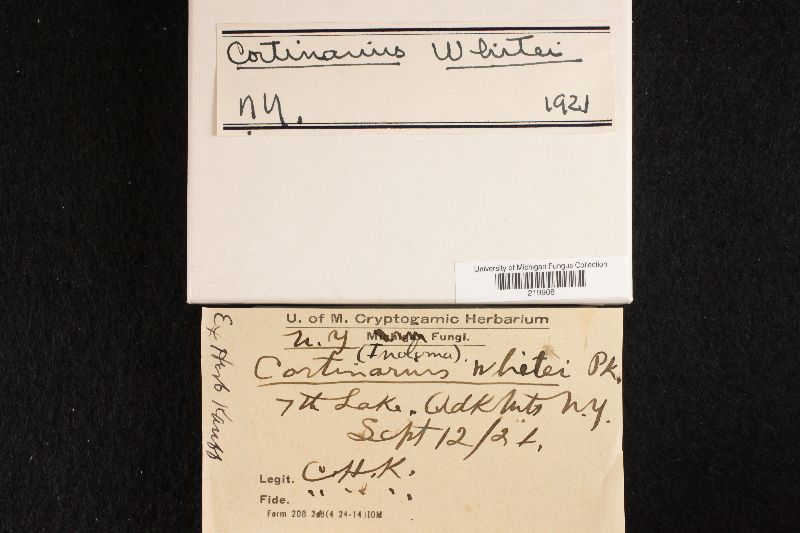 Cortinarius Whitei
N.Y. 1921
University of Michigan Fungus Collection
219908
U. of M. Cryptogamic Herbarium
N.Y. Michigan Fungi.
(Inoloma).
Cortinarius whitei Pk.
7th Lake. Adk Mts N.Y.
Sept 12/21.
Legit. C.H.K.
Fide. " " "
Form 208 2M(4 24-14)IOM
Ex Herb Kauff